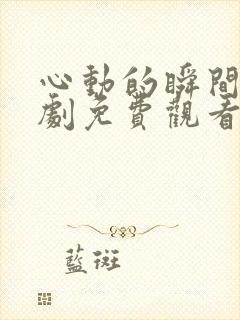 心動的瞬間
劇免費觀看
藍斑